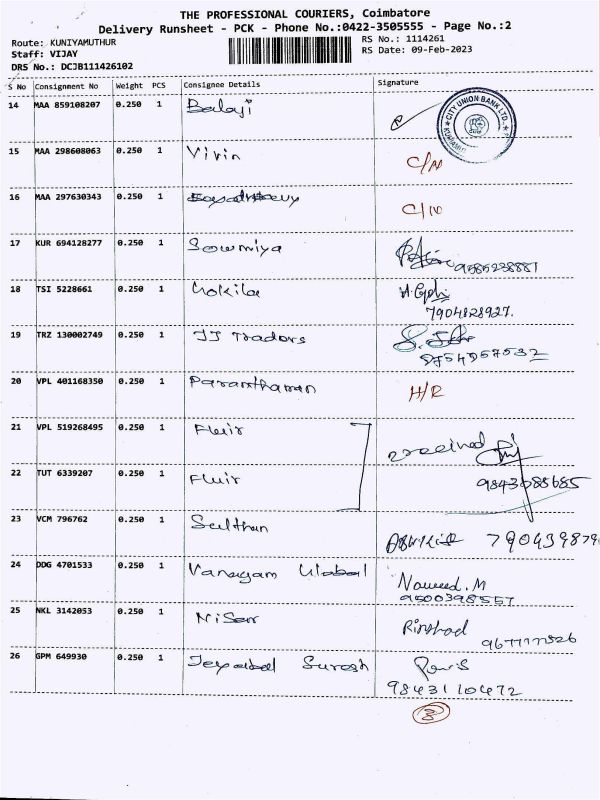 THE PROFESSIONAL COURIERS, Coimbatore
Delivery Runsheet - PCK - Phone No.:0422-3505555 - Page No.:2
Route: KUNIYAMUTHUR
Staff: VIJAY
DRS No.: DCJB111426102
RS No.: 1114261
RS Date: 09-Feb-2023
S No Consignment No Weight PCS Consignee Details Signature
14 MAA 859108207 0.250 1 Balaji
CITY UNION BANK LTD.
15 MAA 298608063 0.250 1 Vivin C/N
16 MAA 297630343 0.250 1 C/N
17 KUR 694128277 0.250 1 Sowmiya
9585238881
18 TSI 5228661 0.250 1 Kokila
7904828927.
19 TRZ 130002749 0.250 1 JJ Tradors
9754957532
20 VPL 401168350 0.250 1 Paranthaman H/R
21 VPL 519268495 0.250 1 Fluir received
22 TUT 6339207 0.250 1 Fluir 9843085685
23 VCM 796762 0.250 1 Sulthan 790439879
24 DDG 4701533 0.250 1 Vanayam Naveed.M
9500398557
25 NKL 3142053 0.250 1 Niser Rinshad
26 GPM 649930 0.250 1 Jeyabal Suresh
9843110472
3